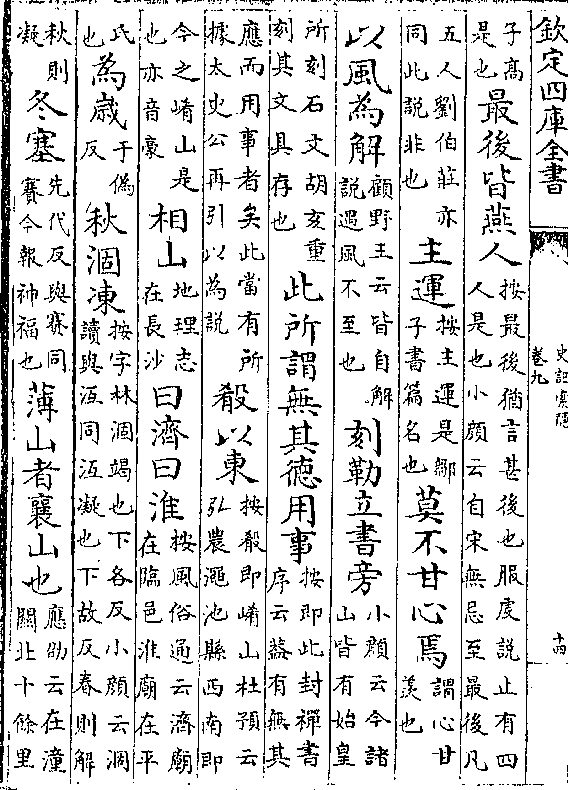 欽定四庫全書
史記索隱
卷九
十四
子髙是也最後皆燕人按最後猶言甚後也服虔説止有四人是也小顔云自宋無忌至最後凡
五人劉伯莊亦同此説非也主運按主運是鄒子書篇名也莫不甘心焉謂心甘羡也
以風為解顧野王云皆自解説遇風不至也刻勒立書旁小顔云今諸山皆有始皇
所刻石文胡亥重刻其文具存也此所謂無其徳用事按即此封禪書序云葢有無其
應而用事者矣此當有所據太史公再引以為説殽以東按殽即崤山杜預云弘農澠池縣西南即
今之崤山是也亦音豪相山地理志在長沙曰濟曰淮按風俗通云濟廟在臨邑淮廟在平
氏也為歳于偽反秋涸凍按字林涸竭也下各反小顔云涸讀與沍同沍凝也下故反春則解
秋則凝冬塞先代反與賽同賽今報神福也薄山者襄山也應劭云在潼關北十餘里